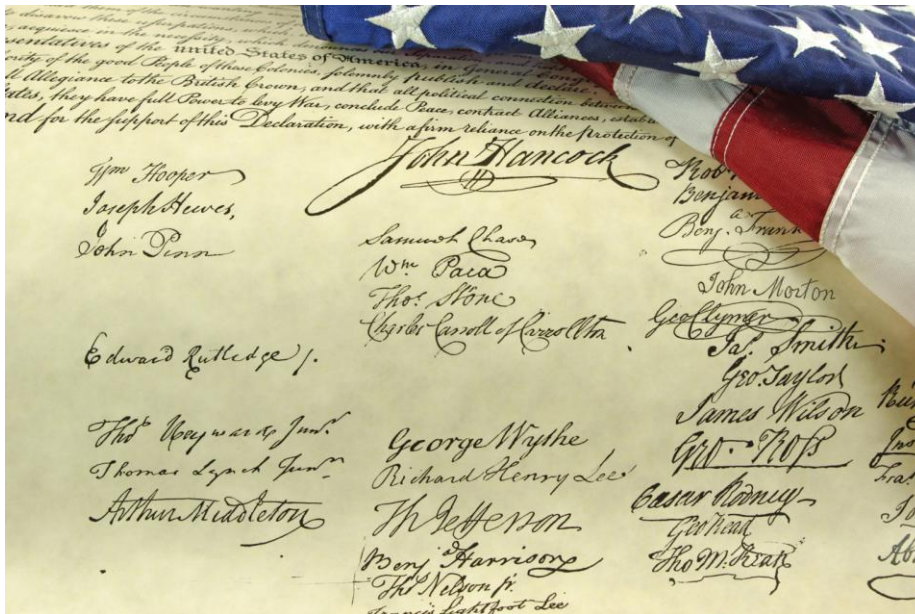 disavow these usurpations, which
acquiesce in the necessity, which denounces
sentatives of the united States of America, in General Cong
ority of the good People of these Colonies, solemnly publish and declare,
ll Allegiance to the British Crown, and that all political connection between
tates, they have full Power to levy War, conclude Peace, contract Alliances, estab
nd for the support of this Declaration, with a firm reliance on the Protection of
John Hancock
Wm Hooper
Joseph Hewes,
John Penn
Edward Rutledge /.
Thos Heyward Junr.
Thomas Lynch Junr
Arthur Middleton
Samuel Chase
Wm Paca
Thos. Stone
Charles Carroll of Carrollton
George Wythe
Richard Henry Lee
Th Jefferson
Benj Harrison
Thos Nelson jr.
Francis Lightfoot Lee
Rob
Benjam
Benj. Frank
John Morton
Geo Clymer
Jas. Smith.
Geo. Taylor
James Wilson
Geo. Ross
Caesar Rodney
Geo Read
Tho M:Kean
Fra.